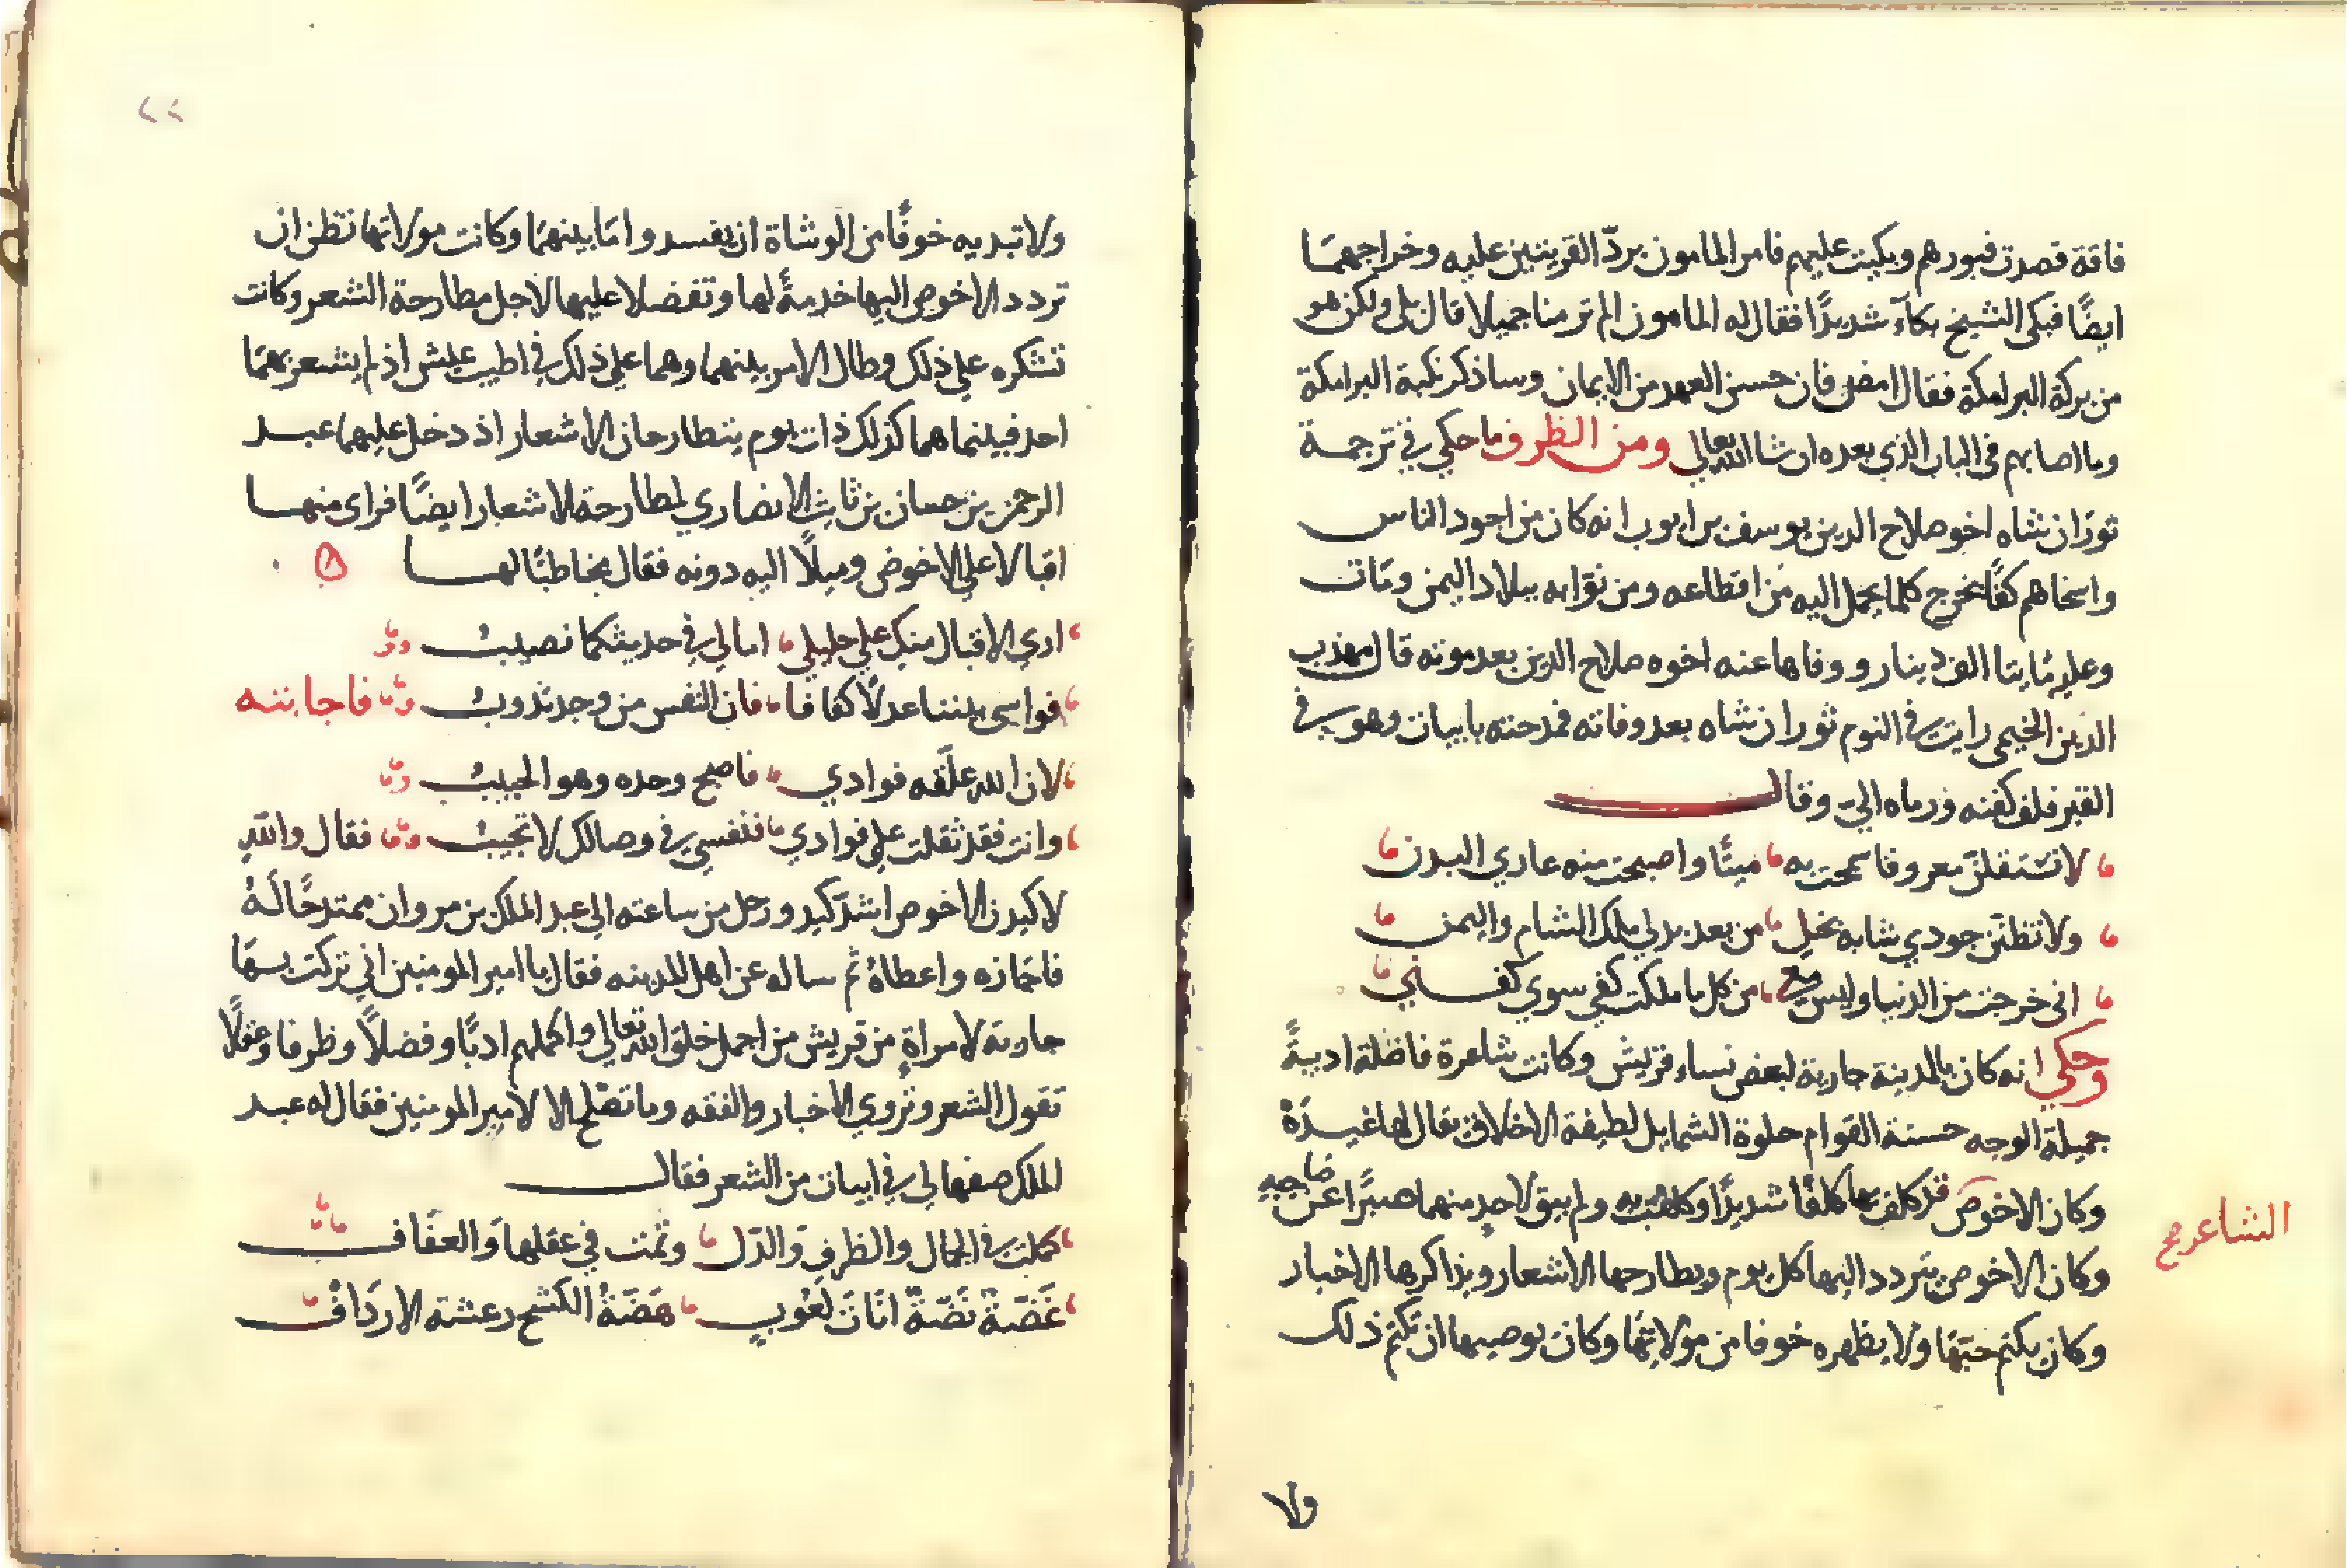 فاقة قصدت قبورهم وبكيت عليهم فامر المامون بردّ القريتين عليه وخراجهما
ايضًا فبكى الشيخ بكآء شديدًا فقال له المامون الم تر منا جميلا قال بلى ولكن هو
من بركة البرامكة فقال امض فان حسن العهد من الايمان وساذكر نكبة البرامكة
وما اصابهم في الباب الذي بعده ان شا الله تعالي ومن الظرف ما حكي في ترجمة
توران شاه اخو صلاح الدين يوسف بن ايوب انه كان من اجود الناس
واسخاهم كفًا يخرج كلما يحمل اليه من اقطاعه ومن نوّابه ببلاد اليمن ومات
وعليه مايتا الف دينار ووفاها عنه اخوه صلاح الدين بعد موته قال مهذب
الدين الخيمي رايت في النوم ثوران شاه بعد وفاته فمدحته بابيات وهو في
القبر فلف كفنه ورماه اليّ وقال
لا تستقلنّ معروفا سمحت به ميتًا واصبحت منه عاري البدن
ولا تظنن جودي شابه بخل من بعد بدلي ملك الشام واليمن
اني خرجت من الدنيا وليس معي من كل ما ملكت كفي سوي كفني
وحكي انه كان بالمدينة جارية لبعض نساء قريش وكانت شاعرة فاضلة اديبةً
جميلة الوجه حسنة القوام حلوة الشمايل لطيفة الاخلاق يقال لها غيدة
وكان الاخوص قد كلف بها كلفًا شديدًا وكلفت به ولم يبق لاحد منهما صبرًا عن صاحبه
الشاعر صح
وكان الاخوص يتردد اليها كل يوم ويطارحها الاشعار ويذاكرها الاخبار
وكان يكتم حبّها ولا يظهره خوفا من مولاتها وكان يوصيها ان تكتم ذلك
ولا
٢٢
ولا تبديه خوفًا من الوشاة ان يفسدوا ما بينهما وكانت مولاتها تظن ان
تردد الاخوص اليها خدمةً لها وتفضلا عليها لاجل مطارحة الشعر وكانت
تشكره علي ذلك وطال الامر بينهما وهما علي ذلك في اطيب عيش اذ لم يشعر بهما
احد فبينما هما كذلك ذات يوم يتطارحان الاشعار اذ دخل عليهما عبد
الرحمن بن حسان بن ثابت الانصاري لمطارحة الاشعار ايضًا فراى منها
اقبالا علي الاخوص وميلًا اليه دونه فقال يخاطبًا لها
اري الاقبال منك علي خليلي اما لي في حديثكما نصيب
فواسي بيننا عدلًا كفافا فان النفس من وجد تذوب فاجابته
لان الله علّقه فوادي فاصبح وحده وهو الحبيب
وانت فقد ثقلت علي فوادي فنفسي في وصالك لا تجيب فقال والله
لاكيدن الاخوص اشدّ كيد ورحل من ساعته الي عبد الملك بن مروان ممتدحًا له
فاجازه واعطاه ثم ساله عن اهل المدينه فقال يا امير المومنين اني تركت بها
جارية لامراة من قريش من اجمل خلق الله تعالي واكملهم ادبًا وفضلًا وظرفا وعقلًا
تقول الشعر وتروي الاخبار والفقه وما تصلح الا لامير المومنين فقال له عبد
الملك صفها لي في ابيات من الشعر فقال
كملت في الجمال والظرف والدّل وتمت في عقلها والعفاف
غضّةٌ بضّةٌ اتان لعوب هضة الكشح رعشة الارداف